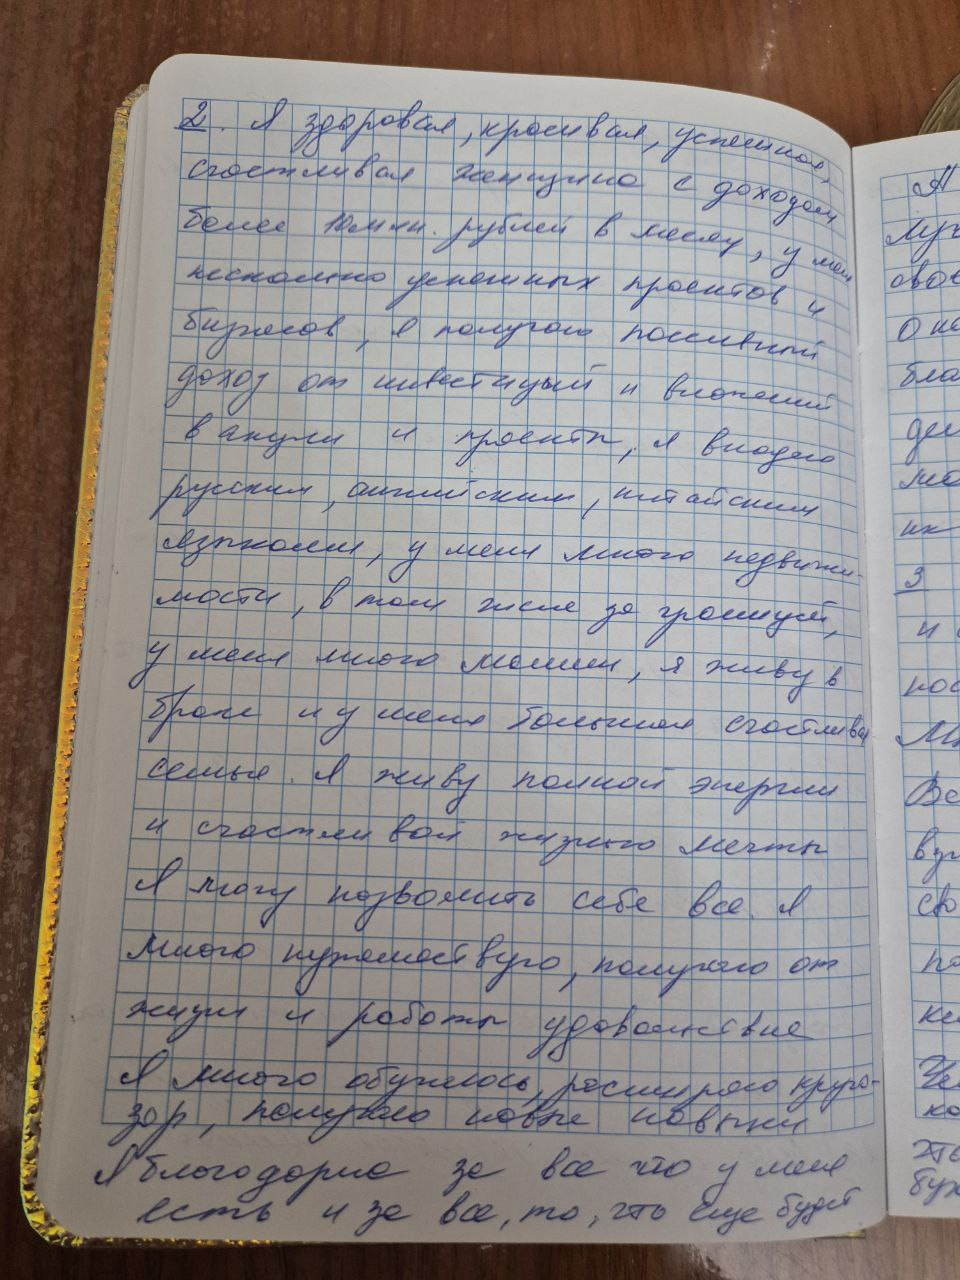 2. Я здоровая, красивая, успешная,
счастливая женщина с доходом
более 10 млн. рублей в месяц, у меня
несколько успешных проектов и
бизнесов, я получаю пассивный
доход от инвестиций и вложений
в акции и проекты, я владею
русским, английским, китайским
языками, у меня много недвижи-
мости, в том числе за границей,
у меня много машин, я живу в
браке и у меня большая счастливая
семья. Я живу полной энергии
и счастливой жизнью мечты
Я могу позволить себе все. Я
много путешествую, получаю от
жизни и работы удовольствие
Я много обучаюсь, расширяю круго-
зор, получаю новые навыки
Я благодарна за все что у меня
есть и за все, то, что еще будет
А
Луч
свое
бла
3
и
пос
Вс
по